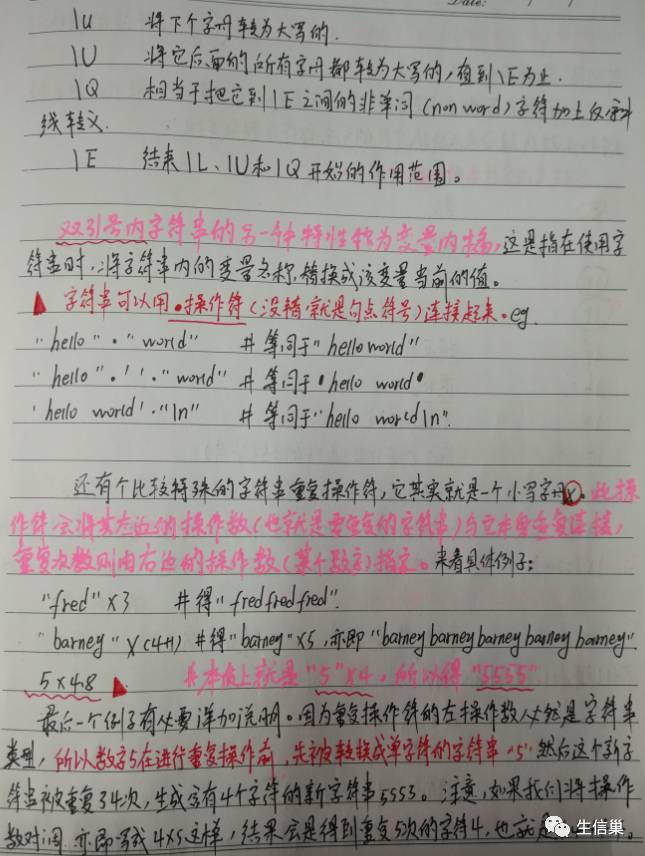 Date:
\u 将下个字母转为大写的.
\U 将它后面的所有字母都转为大写的,直到\E为止.
\Q 相当于把它到\E之间的非单词(nonword)字符加上反斜
线转义.
\E 结束\L、\U和\Q开始的作用范围。
双引号内字符串的另一种特性称为变量内插,这是指在使用字
符串时,将字符串内的变量名称,替换成该变量当前的值。
▲ 字符串可以用 . 操作符(没错,就是句点符号)连接起来。eg.
"hello" . "world" #等同于"helloworld"
"hello" . ' ' . "world" #等同于'hello world'
'hello world' . "\n" #等同于"hello world\n".
还有个比较特殊的字符串重复操作符,它其实就是一个小写字母x。此操
作符会将其左边的操作数(也就是要重复的字符串)与它本身重复连接,
重复次数则由右边的操作数(某个数字)指定。来看具体例子:
"fred" x 3 #得"fredfredfred".
"barney" x (4+1) #得"barney" x 5,亦即"barneybarneybarneybarneybarney".
5 x 4.8 ▲ #本质上就是"5" x 4,所以得"5555"
最后一个例子有必要详加说明。因为重复操作符的左操作数必然是字符串
类型,所以数字5在进行重复操作前,先被转换成单字符的字符串"5"然后这个新字
符串被重复了4次,生成含有4个字符的新字符串5555。注意,如果我们将操作
数对调,亦即写成4x5这样,结果会是得到重复5次的字符4,也就是
生信巢